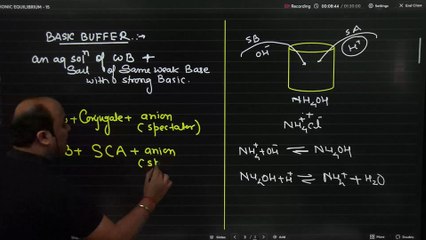 IONIC EQUILIBRIUM - 15
Recording
00:08:44 / 01:30:00
End Class
BASIC BUFFER :-
an aq solⁿ of WB +
Salt of Same Weak Base
with strong Basic.
+ Conjugate + anion
(spectator)
B + SCA + anion
SB
OH⁻
SA
H⁺
NH₄OH
NH₄⁺Cl⁻
NH₄⁺ + OH⁻ ⇌ NH₄OH
NH₄OH + H⁺ ⇌ NH₄⁺ + H₂O